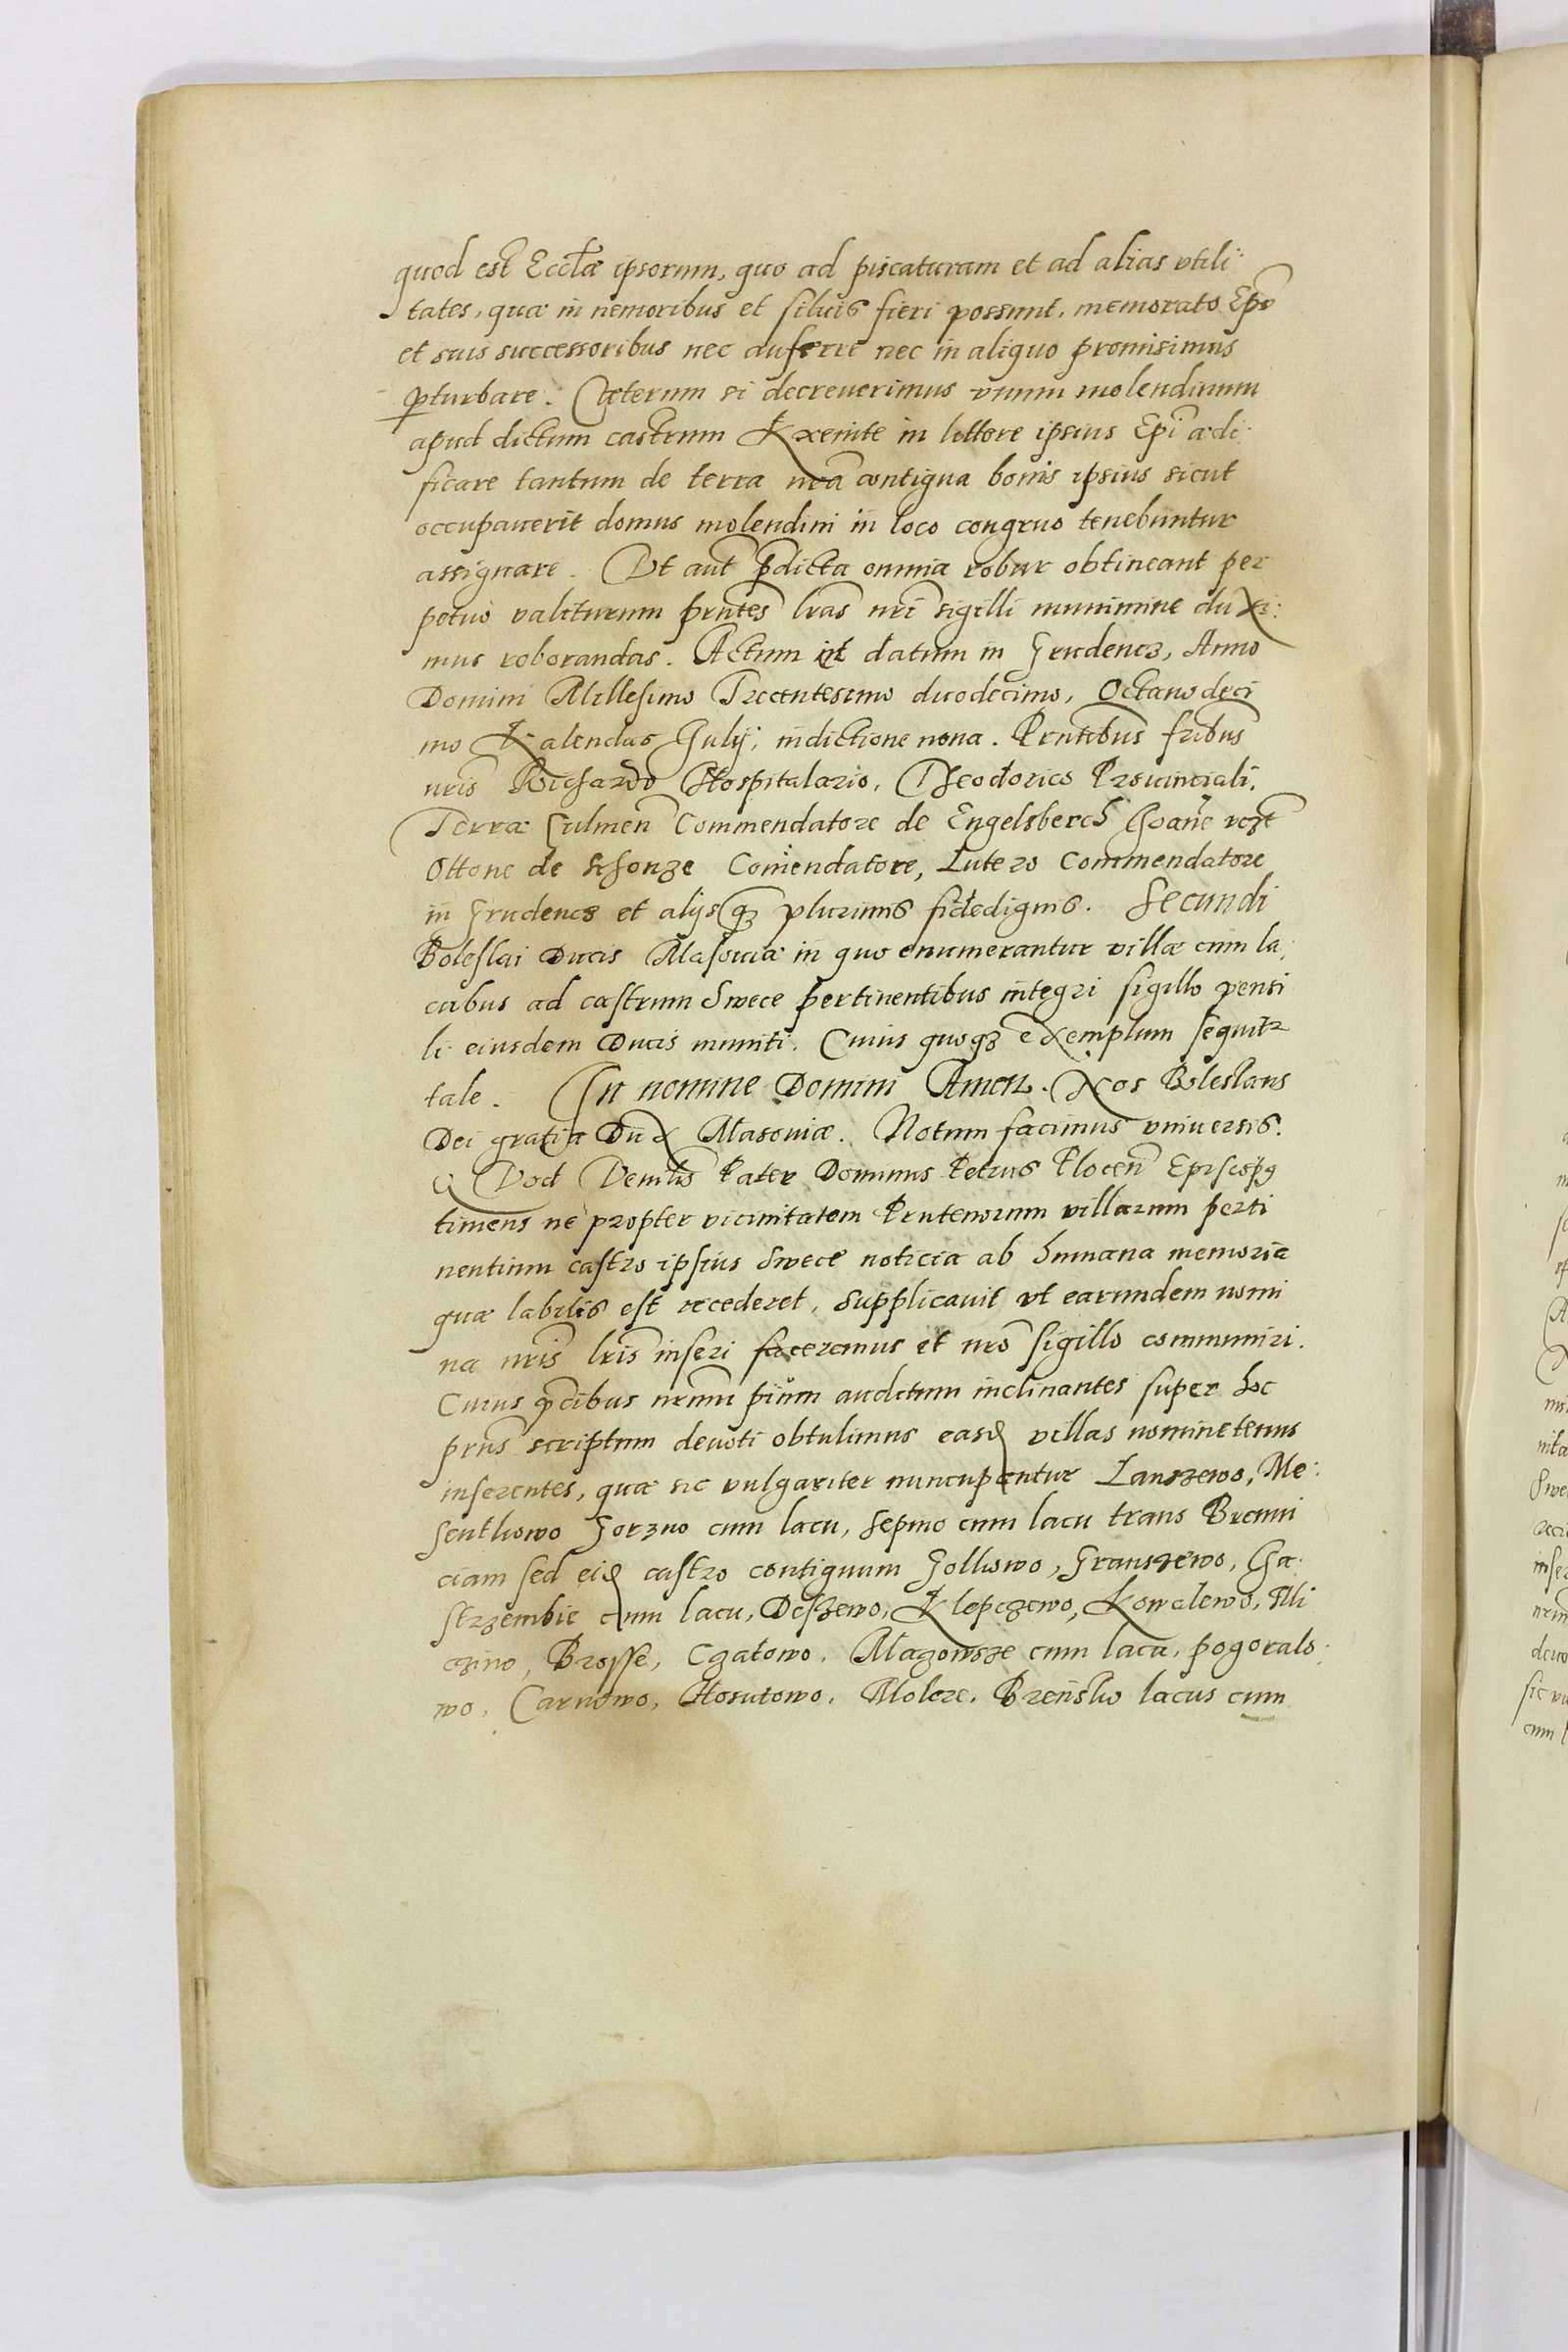 quod est Ecclæ ipsorum, quo ad piscaturam et ad alias vtili:
tates, quæ in nemoribus et siluis fieri possunt, memorato Epo
et suis successoribus nec auferre nec in aliquo promisimus
pturbare. Cæterum si decreuerimus vnum molendinum
apud dictum castrum Kxemte in littore ipsius Epi ædi:
ficare tantum de terra nra contigua bonis ipsius sicut
occupauerit domus molendini in loco congruo tenebuntur
assignare. Vt aut pdicta omnia robur obtineant per
petuo valiturum pntes lras nri sigilli munimine duxi:
mus roborandas. Actum et datum in Grudencz, Anno
Domini Millesimo Trecentesimo duodecimo, Octauo deci
mo Kalendas Julij, indictione nona. Pntibus fribus
nris Richardo Hospitalario, Theodorico Prouinciali,
Terræ Culmen Commendatore de Engelsberch
Ottone de Comendatore, Lutero Commendatore
in Grudencz et alijsq plurimis fidedignis. Secundi
Boleslai Ducis Masouiæ in quo enumerantur villæ cum la:
cubus ad castrum Swece pertinentibus integri sigillo pensi
li eiusdem Ducis muniti. Cuius quoq exemplum sequitr
tale. In nomine Domini Amen. Nos Boleslaus
Dei gratia Dux Masouiæ. Notum facimus vniuersis.
Qvod Venlis Pater Dominus Petrus Plocen Episcopq
timens ne propter vicinitatem Prutenorum villarum perti
nentium castro ipsius Swece noticia ab humana memoria
quæ labilis est recederet, supplicauit vt earundem nomi
na nris lris inseri faceremus et nro sigillo communiri.
Cuius pcibus nrum pium auditum inclinantes super hoc
pns scriptum deuoti obtulimus easd villas nominetenus
inserentes, quæ sic vulgariter nuncupantur Lanszewo, Me:
senthowo Gorzno cum lacu, sepno cum lacu trans Brenni
ciam sed eid castro contiguum Golkowo, Granszewo, Ja:
strzembie cum lacu, Deszewo, Klepczewo, Kowalewo, Mli
czino, Brosse, Czatowo, Mazowsze cum lacu, pogoralo:
wo, Carnowo, Hosutowo, Molere, Brensko lacus cum